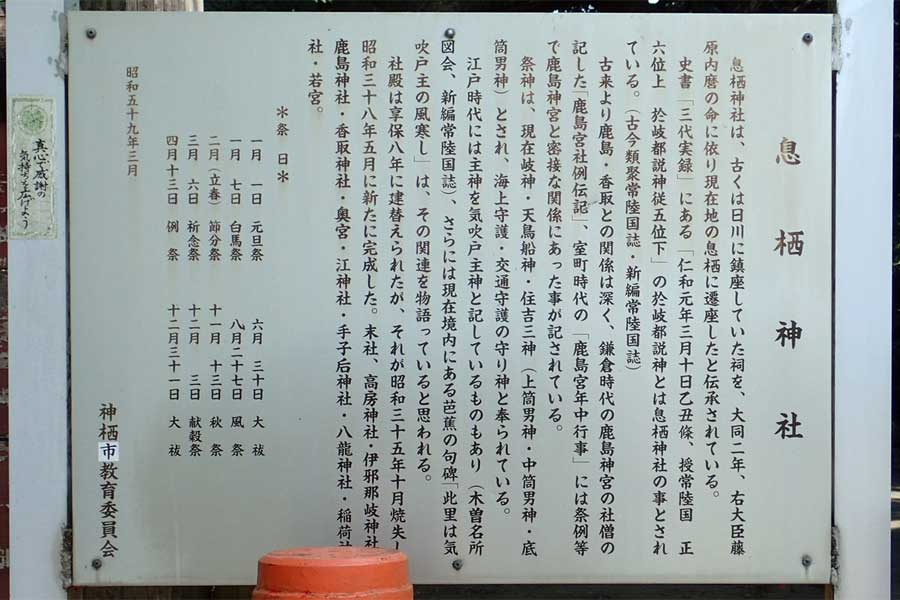 息栖神社
息栖神社は、古くは日川に鎮座していた祠を、大同二年、右大臣藤
原内麿の命に依り現在地の息栖に遷座したと伝承されている。
史書「三代実録」にある「仁和元年三月十日乙丑條、授常陸国 正
六位上 於岐都説神従五位下」の於岐都説神とは息栖神社の事とされ
ている。（古今類聚常陸国誌・新編常陸国誌）
古来より鹿島・香取との関係は深く、鎌倉時代の鹿島神宮の社僧の
記した「鹿島宮社例伝記」、室町時代の「鹿島宮年中行事」には祭例等
で鹿島神宮と密接な関係にあった事が記されている。
祭神は、現在岐神・天鳥船神・住吉三神（上筒男神・中筒男神・底
筒男神）とされ、海上守護・交通守護の守り神と奉られている。
江戸時代には主神を気吹戸主神と記しているものもあり（木曽名所
図会、新編常陸国誌）、さらには現在境内にある芭蕉の句碑「此里は気
吹戸主の風寒し」は、その関連を物語っていると思われる。
社殿は享保八年に建替えられたが、それが昭和三十五年十月焼失し
昭和三十八年五月に新たに完成した。末社、高房神社・伊邪那岐神社
鹿島神社・香取神社・奥宮・江神社・手子后神社・八龍神社・稲荷神
社・若宮。
＊祭 日＊
一月 一日 元旦祭 六月 三十日 大 祓
一月 七日 白馬祭 八月二十七日 風 祭
二月（立春） 節分祭 十一月 十三日 秋 祭
三月 六日 祈念祭 十二月 三日 献穀祭
四月十三日 例 祭 十二月三十一日 大 祓
昭和五十九年三月
神栖市教育委員会
真心と感謝の
気持ちを広げよう